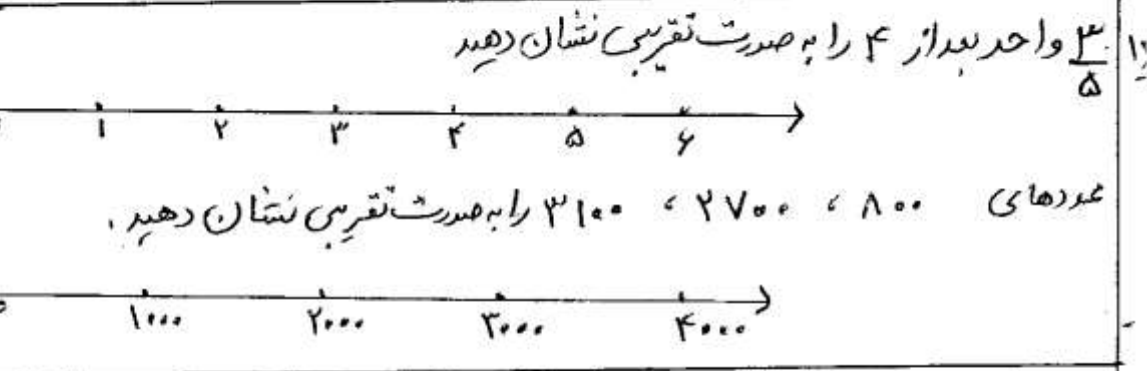 ۳/۵ واحد بعد از ۴ را به صورت تقریبی نشان دهید
۱ ۲ ۳ ۴ ۵ ۶
عددهای ۸۰۰ ، ۲۷۰۰ ، ۳۱۰۰ را به صورت تقریبی نشان دهید .
۱۰۰۰ ۲۰۰۰ ۳۰۰۰ ۴۰۰۰